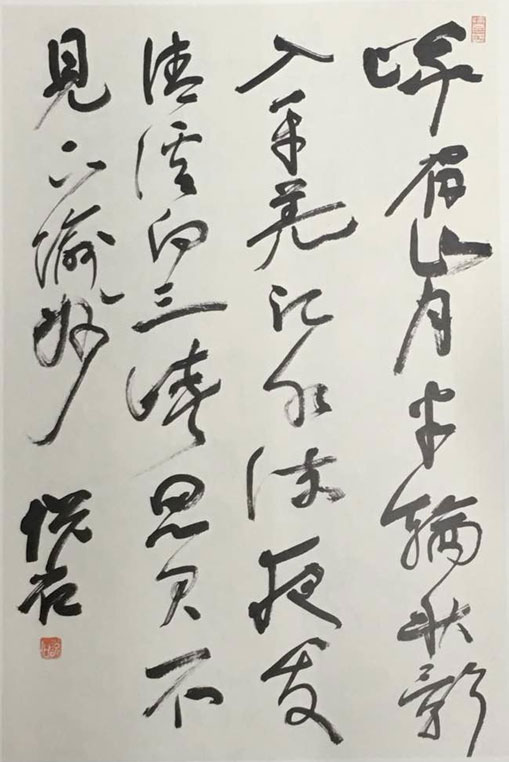 峨眉山月半輪秋影
入平羌江水流夜发
清溪向三峽思君不
見下渝州